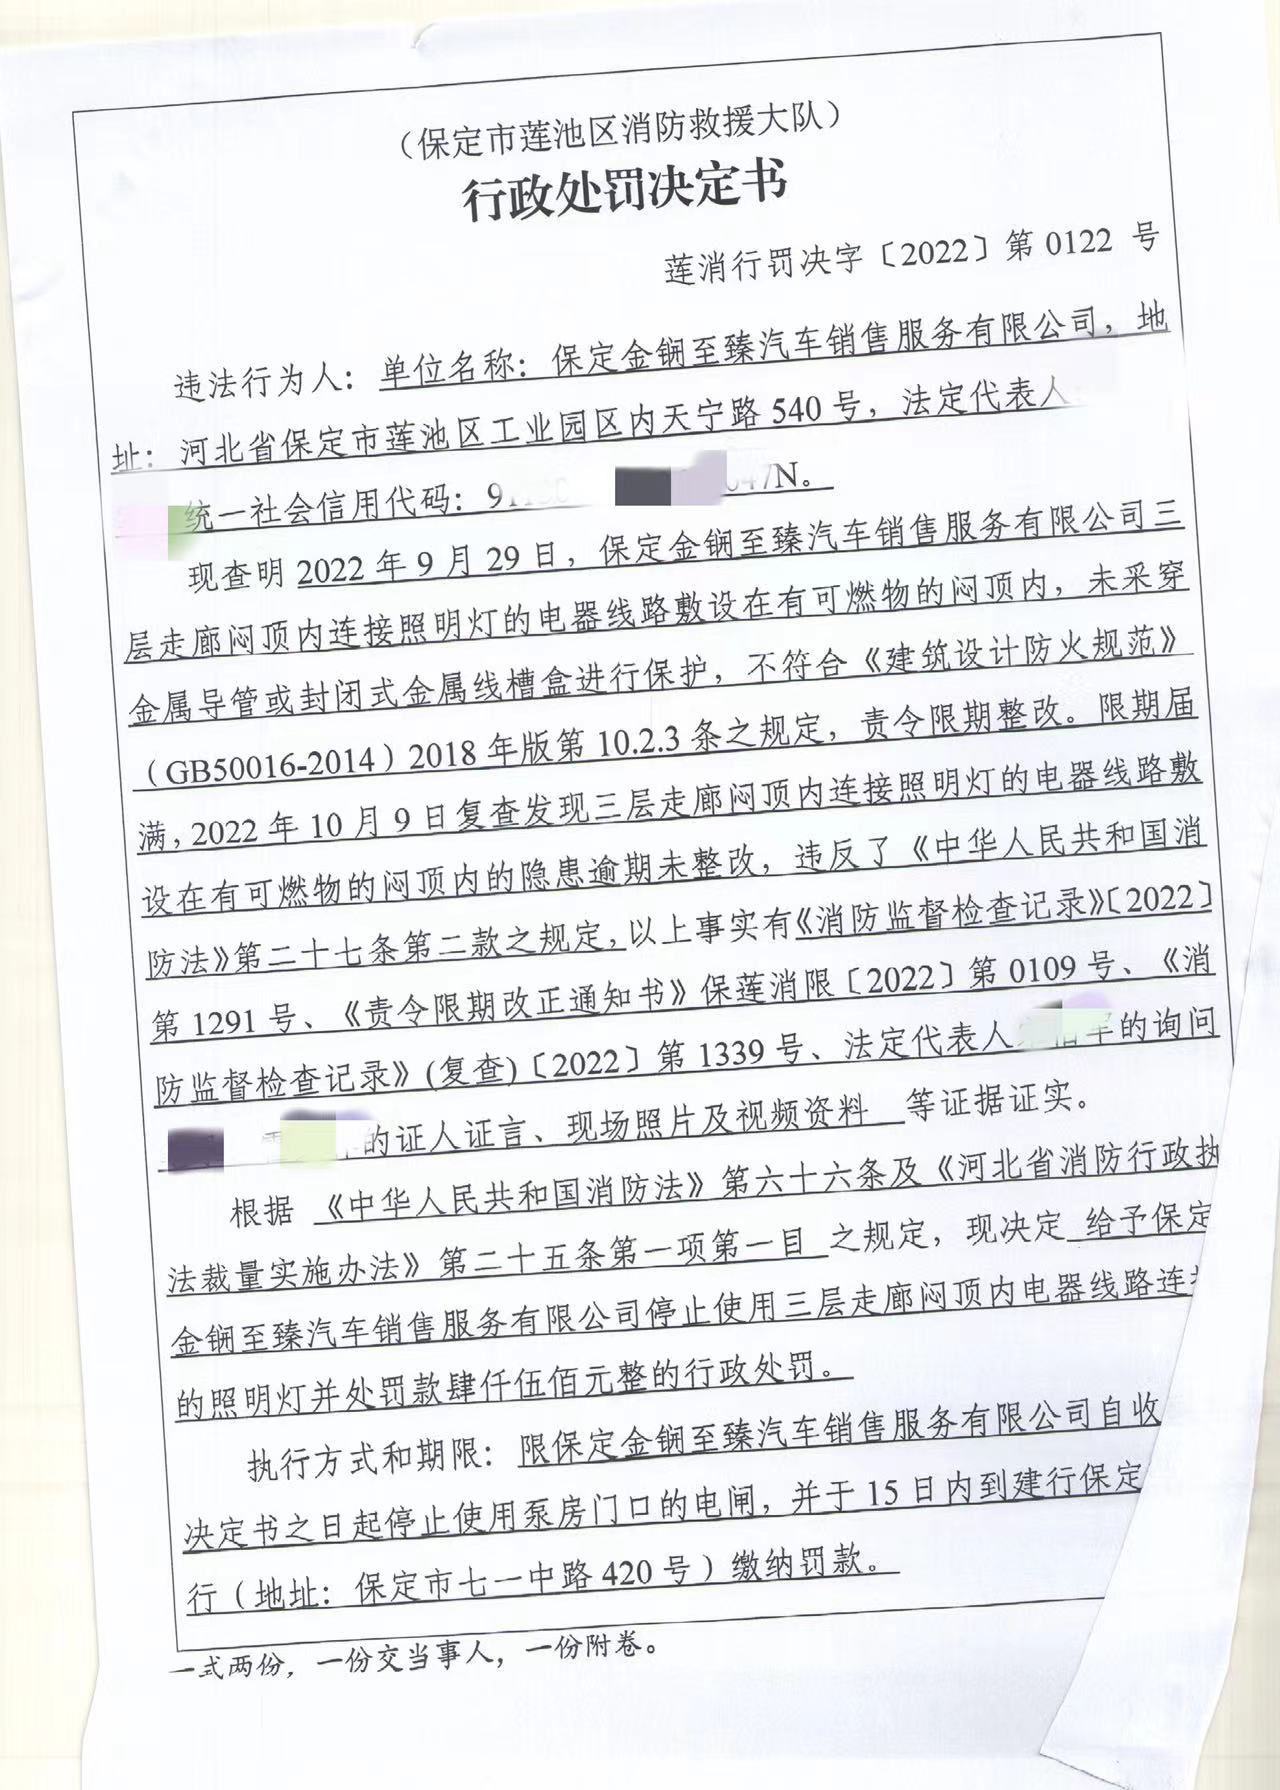 （保定市莲池区消防救援大队）
行政处罚决定书
莲消行罚决字〔2022〕第 0122 号
违法行为人：单位名称：保定金锎至臻汽车销售服务有限公司，地
址：河北省保定市莲池区工业园区内天宁路 540 号，法定代表人
统一社会信用代码：9 47N。
现查明 2022 年 9 月 29 日，保定金锎至臻汽车销售服务有限公司三
层走廊闷顶内连接照明灯的电器线路敷设在有可燃物的闷顶内，未采穿
金属导管或封闭式金属线槽盒进行保护，不符合《建筑设计防火规范》
（GB50016-2014）2018 年版第 10.2.3 条之规定，责令限期整改。限期届
满，2022 年 10 月 9 日复查发现三层走廊闷顶内连接照明灯的电器线路敷
设在有可燃物的闷顶内的隐患逾期未整改，违反了《中华人民共和国消
防法》第二十七条第二款之规定，以上事实有《消防监督检查记录》〔2022〕
第 1291 号、《责令限期改正通知书》保莲消限〔2022〕第 0109 号、《消
防监督检查记录》(复查)〔2022〕第 1339 号、法定代表人 军的询问
的证人证言、现场照片及视频资料 等证据证实。
根据 《中华人民共和国消防法》第六十六条及《河北省消防行政执
法裁量实施办法》第二十五条第一项第一目 之规定，现决定 给予保定
金锎至臻汽车销售服务有限公司停止使用三层走廊闷顶内电器线路连
的照明灯并处罚款肆仟伍佰元整的行政处罚。
执行方式和期限：限保定金锎至臻汽车销售服务有限公司自收
决定书之日起停止使用泵房门口的电闸，并于 15 日内到建行保定
行（地址：保定市七一中路 420 号）缴纳罚款。
一式两份，一份交当事人，一份附卷。